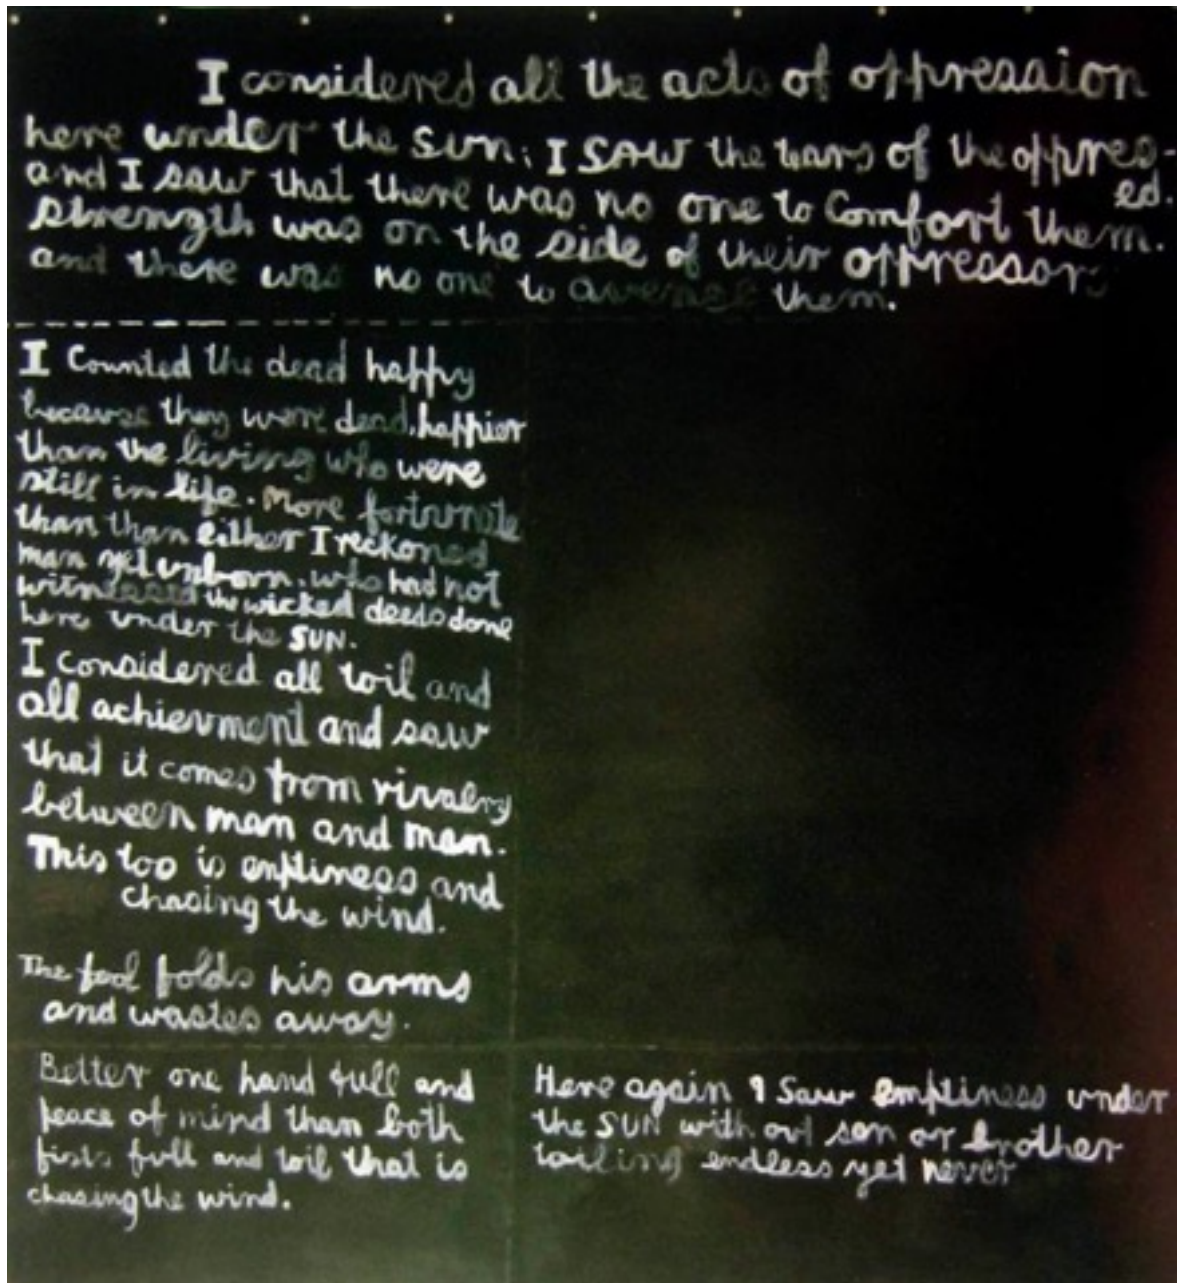 I considered all the acts of oppression
here under the SUN; I SAW the tears of the oppres-
ed.
and I saw that there was no one to Comfort them.
strength was on the side of their oppressors
and there was no one to avenge them.
I Counted the dead happy
because they were dead, happier
than the living who were
still in life. More fortunate
than than either I reckoned
man yet unborn. who had not
witnessed the wicked deeds done
here under the SUN.
I considered all toil and
all achievment and saw
that it comes from rivalry
between man and man.
This too is emptiness and
chasing the wind.
The fool folds his arms
and wastes away.
Better one hand full and
peace of mind than both
fists full and toil that is
chasing the wind.
Here again I Saw emptiness under
the SUN with out son or brother
toiling endless yet never